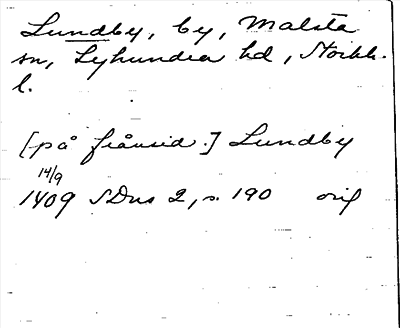 Lundby, by, Malsta
sn, Lyhundra hd, Stockh.
l.
[på frånsid.] Lundby
14/9
1409 SDns 2, s. 190 orig